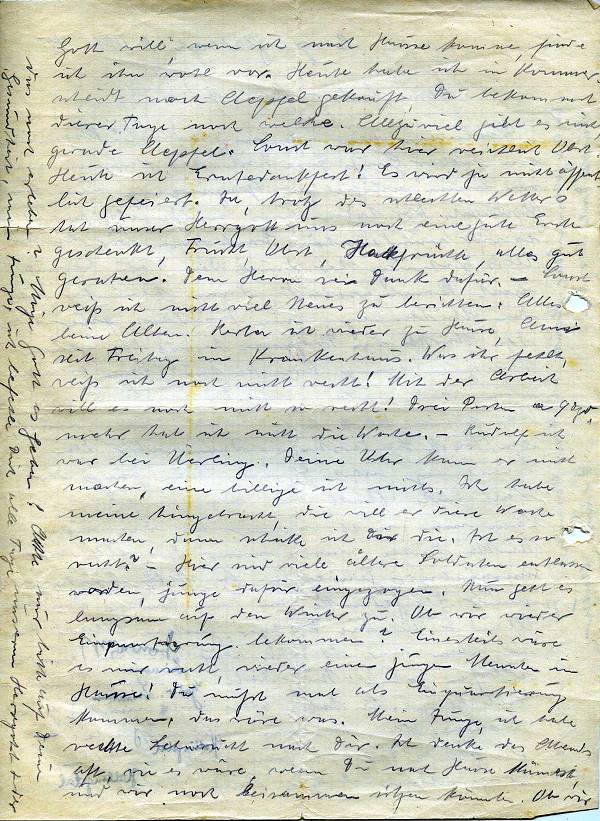 Gott will, wenn ich nach Hause komme, finde
ich ihn wohl vor. Heute habe ich in Kommer-
scheidt noch Aepfel gekauft, Du bekommst
dieser Tage noch welche. Allzuviel gibt es nicht
gerade Aepfel. Sonst war hier reichlich Obst.
Heute ist Erntedankfest! Es wird ja nicht öffent-
lich gefeiert. Ja, trotz des schlechten Wetters
hat unser Herrgott uns noch eine gute Ernte
geschenkt, Frucht, Obst, Hackfrüchte alles gut
geraten. Dem Herrn sei Dank dafür. – Sonst
weiß ich nicht viel Neues zu berichten. Alles
beim Alten. ist wieder zu Hause,
seit Freitag im Krankenhaus. Was ihr fehlt,
weiß ich noch nicht recht! Mit der Arbeit
will es noch nicht so recht! Drei
mehr hab ich nicht die Woche. – Rudolf ist
war bei Nerling. Deine Uhr kann er nicht
machen, eine billige ist nichts. Ich habe
meine hingebracht, die will er diese Woche
machen, dann schicke ich Dir die. Ist es so
recht? – Hier sind viele ältere Soldaten entlassen
worden, junge dafür eingezogen. Nun geht es
langsam auf den Winter zu. Ob wir wieder
Einquartierung bekommen? Einesteils wäre
es mir recht, wieder einen jungen Menschen im
Hause! Du müßtest mal als Einquartierung
kommen, das wäre was. Mein Junge, ich habe
rechte Sehnsucht nach Dir. Ich denke des Abends
oft, wie es wäre, wenn Du nach Hause kämest,
und wir noch beisammen sitzen könnten. Ob wir
das noch erleben? Möge Gott es geben! Achte nur bitte auf Deine
Gesundheit, mein Junge, ich befehle Dich alle Tage unserem Herrgott